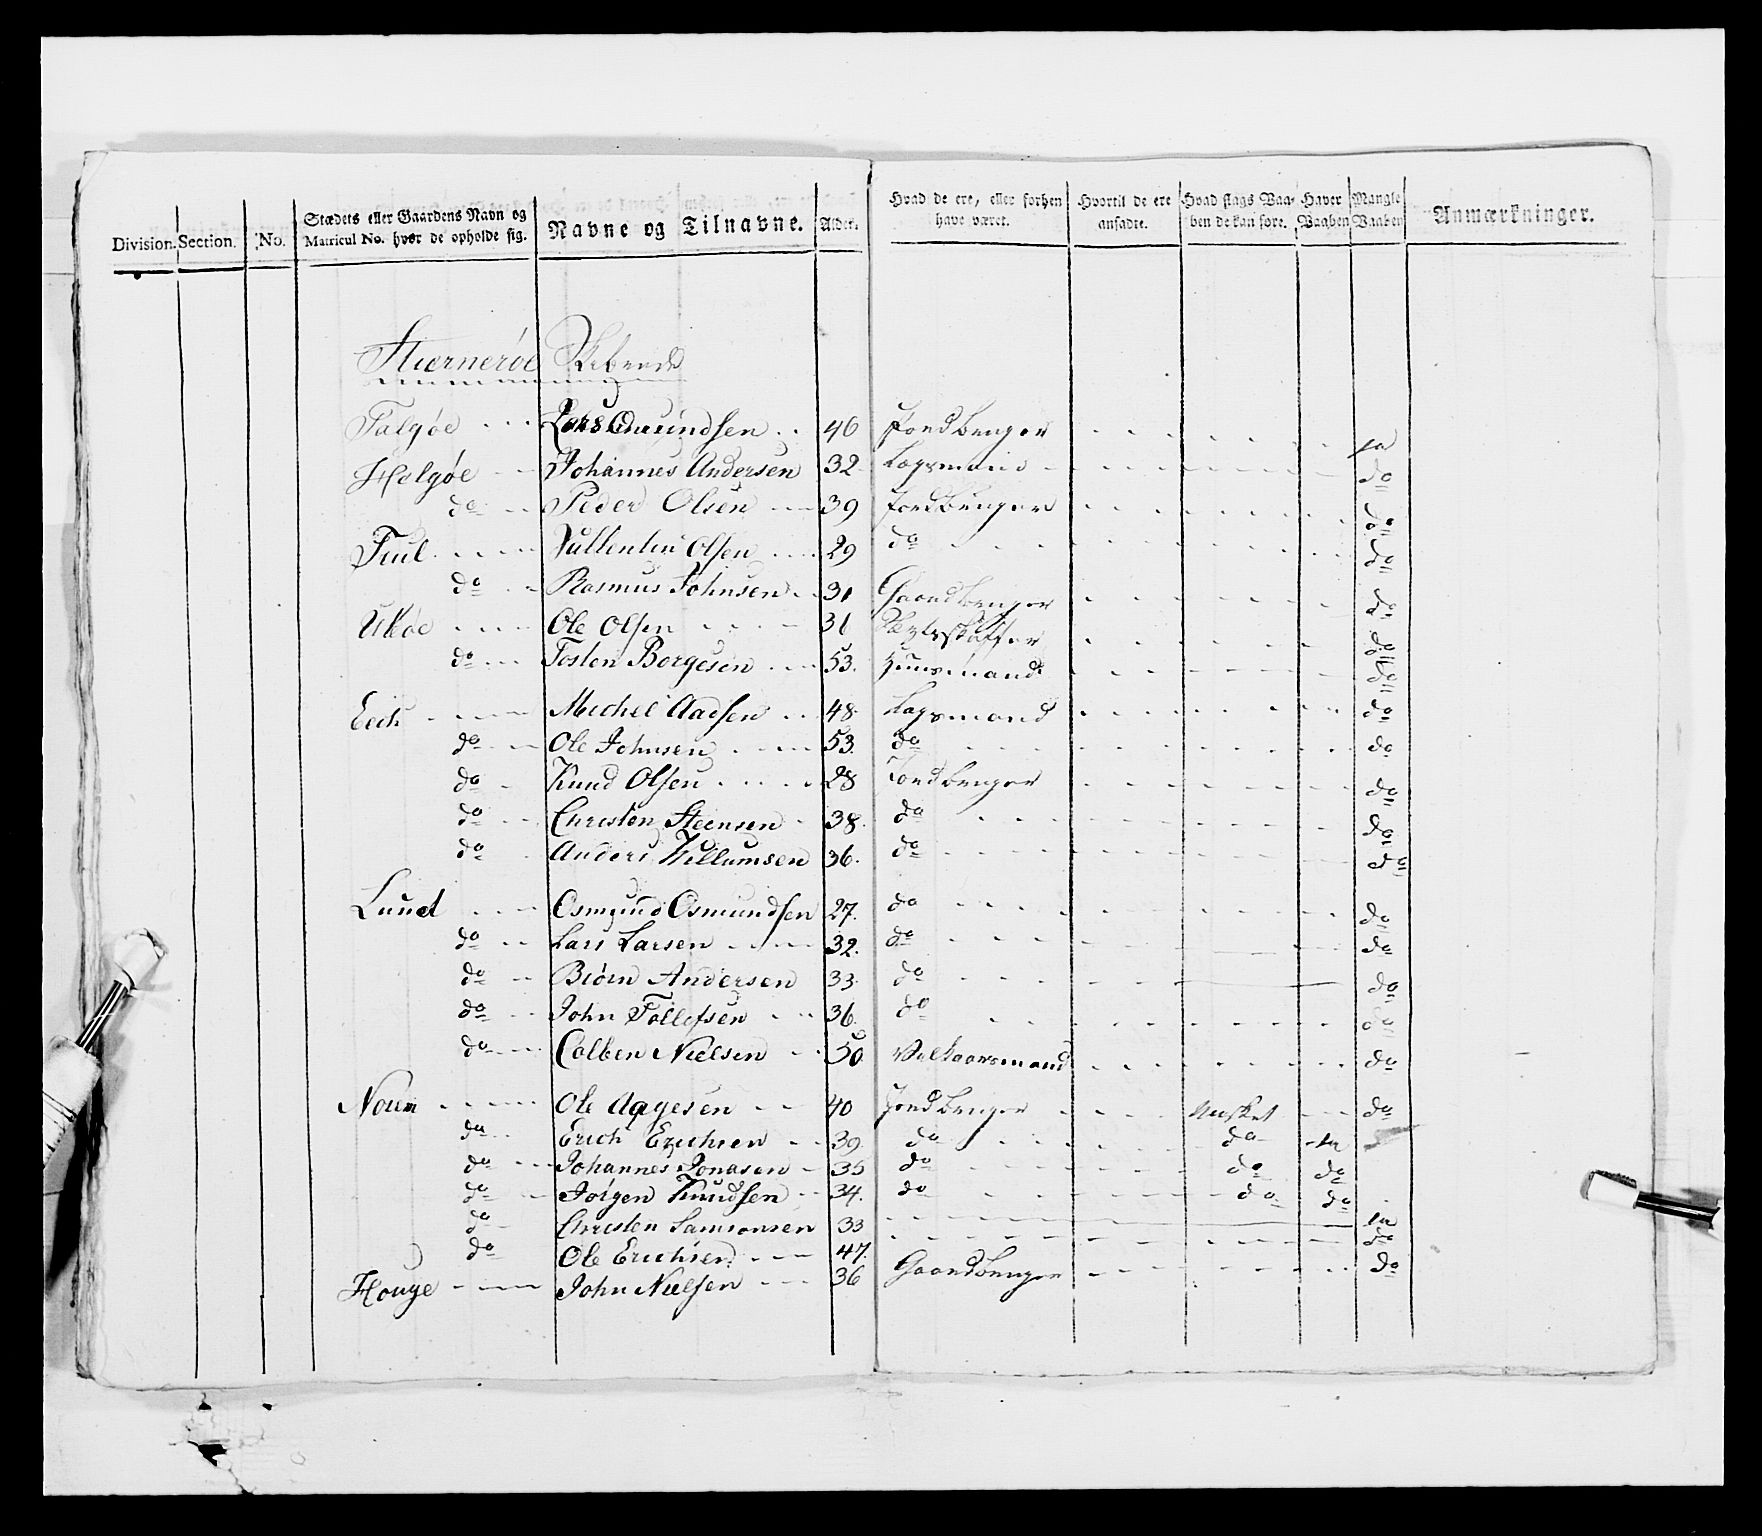 Division. Section. No. Stædets eller Gaardens Navn og Matricul No. hvor de opholde sig. Navne og Tilnavne. Alder. Hvad de ere, eller forhen have været. Hvortil de ere ansadte. Hvad slags Vaaben de kan føre. Haver Vaaben Mangle Vaaben Anmærkninger.
Stiernerøe
Talgøe Lars Omundsen 46 Jordbruger 1a
Helgøe Johannes Andersen 32 Lagsmand do
do Peder Olsen 39 Jordbruger do
Fiul Vallentin Olsen 29 do do
do Rasmus Johnsen 31 Gaardbruger do
Uhøe Ole Olsen 31 do
do Tosten Borgesen 53. Huusmand do
Eech Michel Aadsen 48. Lagsmand do
do Ole Johnsen 53. do do
do Knud Olsen 28 Jordbruger do
do Christen Steensen 38. do do
do Anders Villumsen 36. do do
Lund Osmund Osmundsen 27. do do
do Lars Larsen 32. do do
do Biørn Andersen 33. do do
do John Tollefsen 36. do do
do Colben Nielsen 50 do
Noren Ole Aagesen 40 Jordbruger Musket do
do Erich Erichsen 39. do do 1a
do Johannes Jonasen 35 do do do
do Jörgen Knudsen 34. do do do
do Christen Samsonsen 33 1a
do Ole Erichsen 47. do
Houge John Nielsen 36 Gaardbruger do